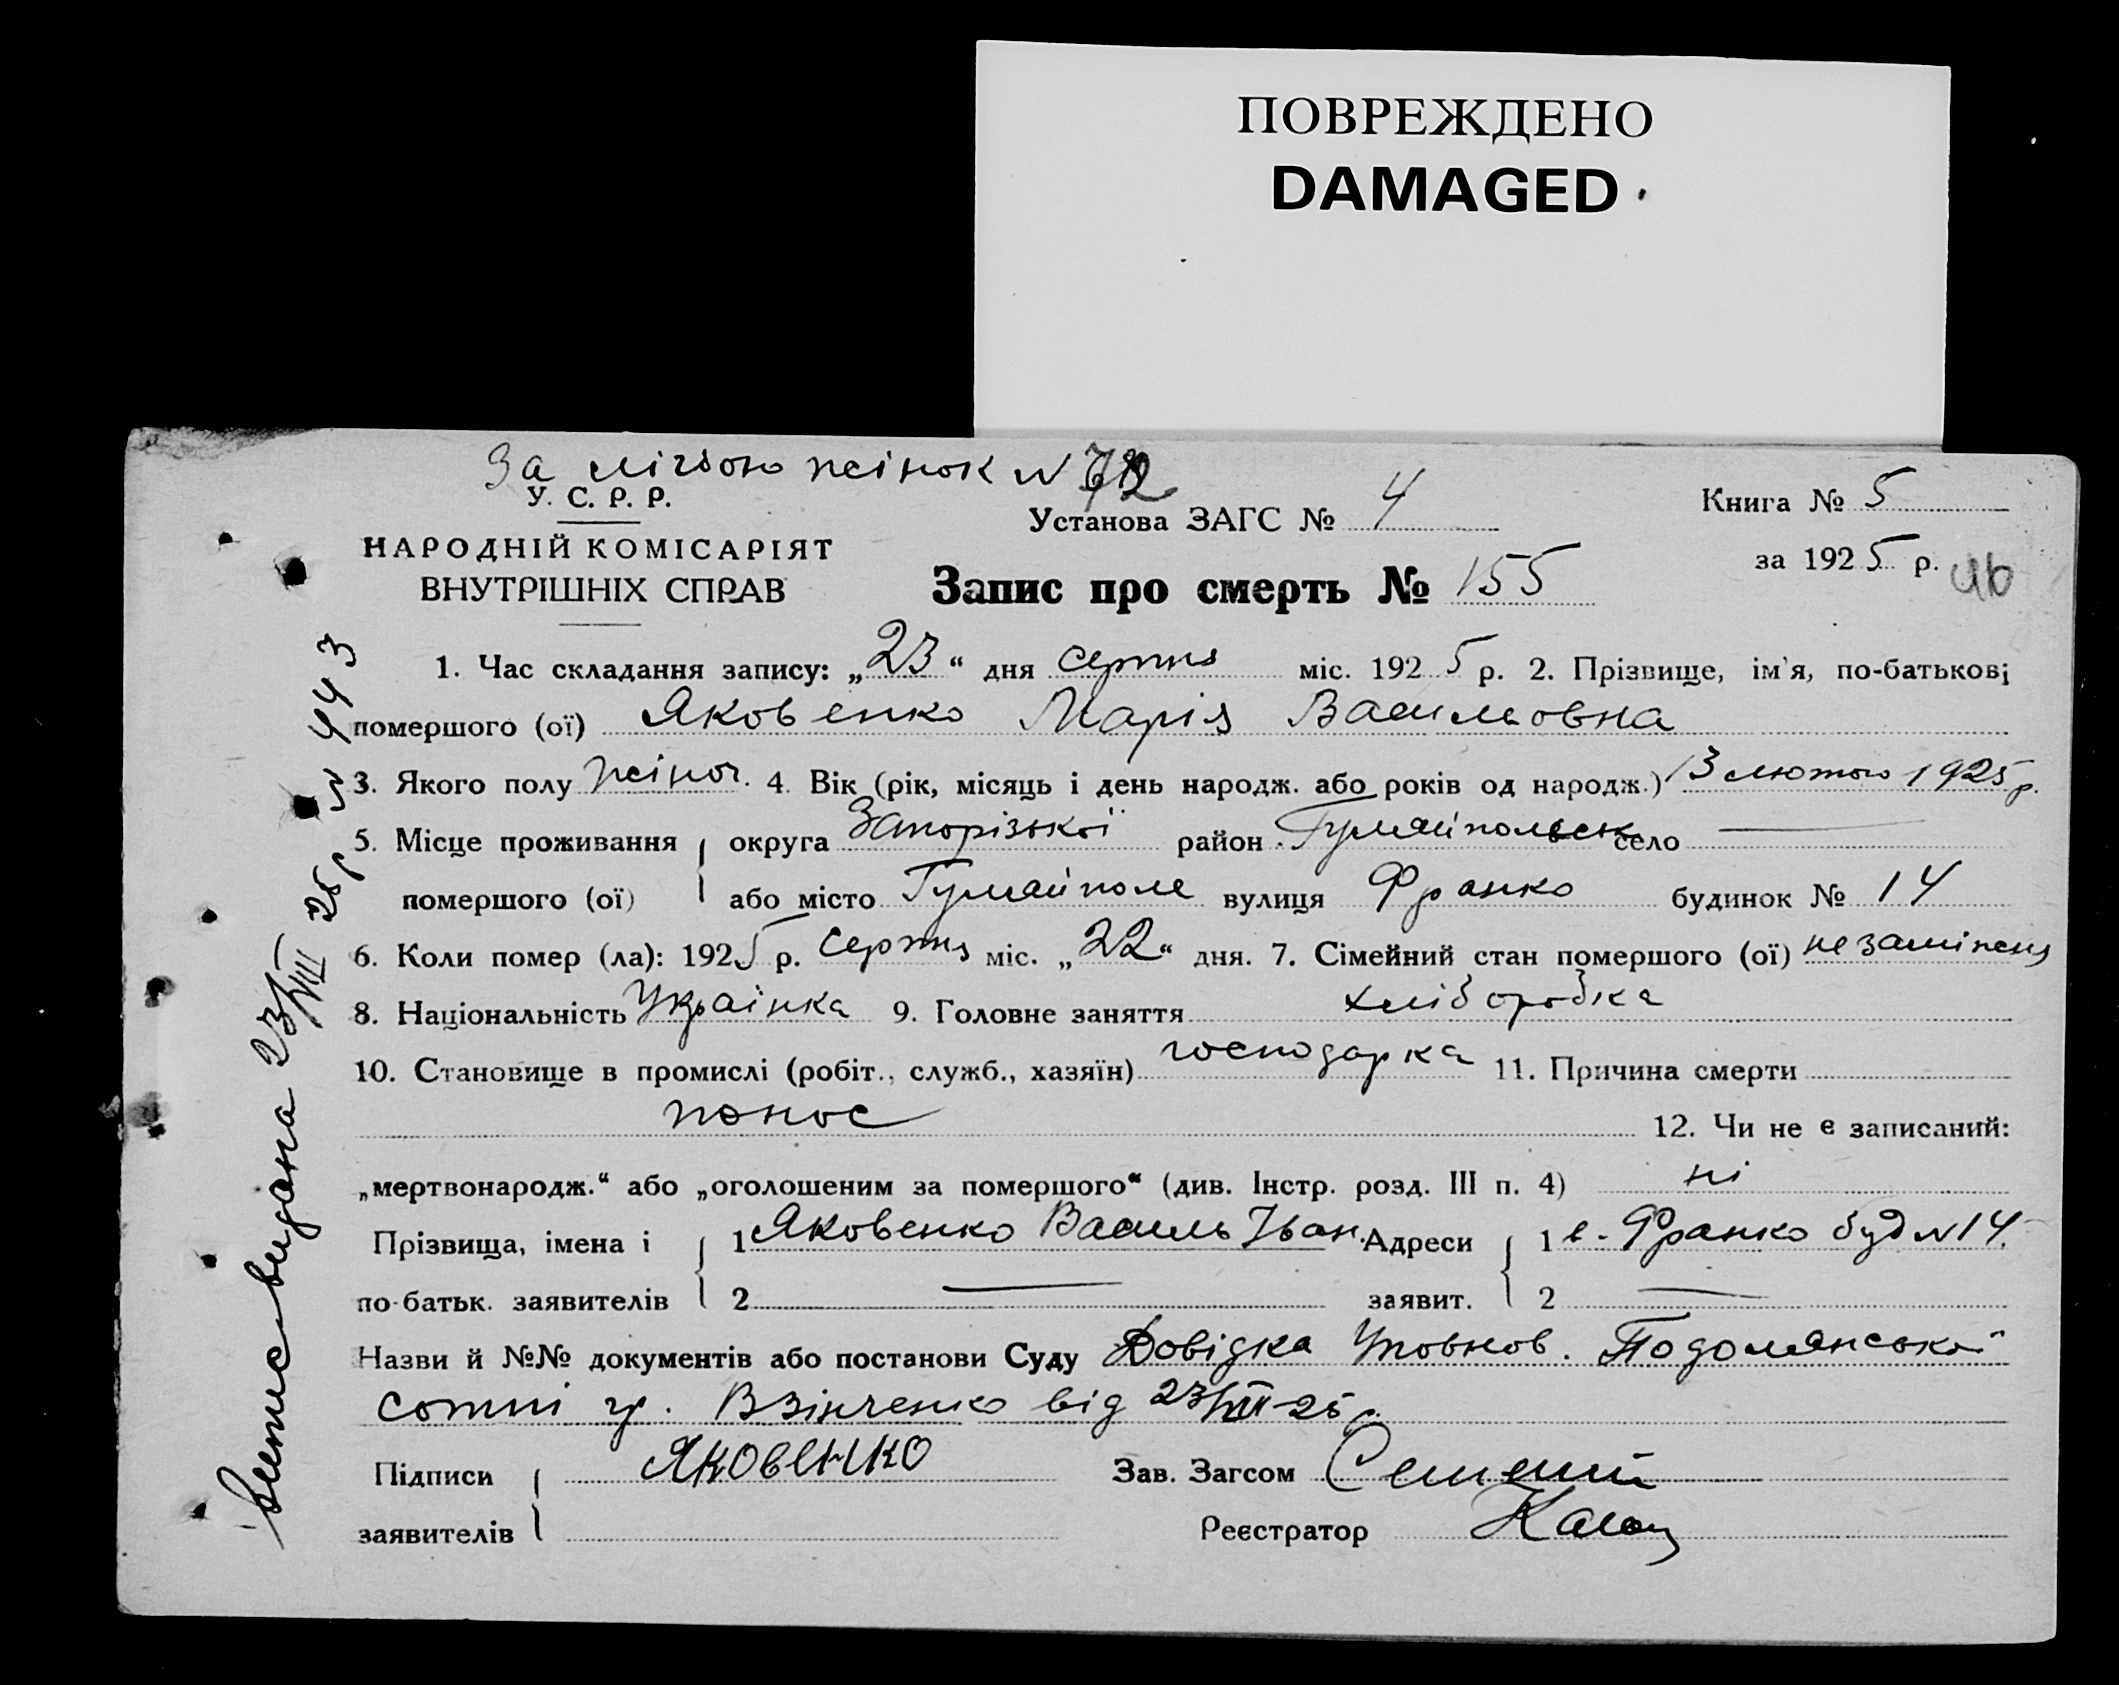 ПОВРЕЖДЕНО
DAMAGED
За лічбою жінок N 72
У. С. Р. Р.
НАРОДНІЙ КОМІСАРІЯТ
ВНУТРІШНІХ СПРАВ
Установа ЗАГС № 4
Книга № 5
за 1925 р.
46
Запис про смерть № 155
1. Час складання запису: „23“ дня серпня міс. 1925 р. 2. Прізвище, ім'я, по-батькові
помершого (ої) Яковенко Марія Васильовна
3. Якого полу жіноч. 4. Вік (рік, місяць і день народж. або років од народж.) 13 лютого 1925 р.
5. Місце проживання округа Запорізької район Гуляйпольск село —
помершого (ої) або місто Гуляйполе вулиця Франко будинок № 14
6. Коли помер (ла): 1925 р. серпня міс. „22“ дня. 7. Сімейний стан помершого (ої) незаміжня
8. Національність Українка 9. Головне заняття хліборобка
10. Становище в промислі (робіт., служб., хазяїн) господарка 11. Причина смерти
понос 12. Чи не є записаний:
„мертвонародж.“ або „оголошеним за помершого“ (див. Інстр. розд. III п. 4) ні
Прізвища, імена і 1 Яковенко Василь Іван. Адреси 1 в. Франко буд N 14.
по-батьк. заявителів 2 — заявит. 2 —
Назви й №№ документів або постанови Суду Довідка Уповнов. Подолянської
сотні гр. Взінченко від 23/VIII-25 р.
Підписи ЯКОВЕНКО Зав. Загсом
заявителів Реєстратор
Витис видана 23/VIII 25 р. N 443